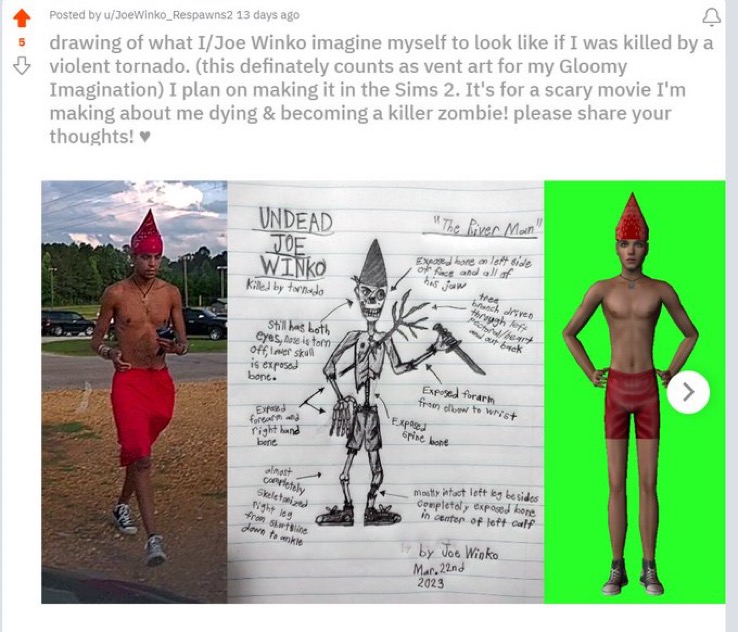 Posted by u/JoeWinko_Respawns2 13 days ago
5
drawing of what I/Joe Winko imagine myself to look like if I was killed by a
violent tornado. (this definately counts as vent art for my Gloomy
Imagination) I plan on making it in the Sims 2. It's for a scary movie I'm
making about me dying & becoming a killer zombie! please share your
thoughts! ♥
UNDEAD
JOE
WINKO
Killed by tornado
"The River Man"
Exposed bone on left side
of face and all of
his jaw
tree
branch driven
through left
pectoral/heart
and out back
Still has both
eyes, nose is torn
off, lower skull
is exposed
bone.
Exposed forarm
from elbow to wrist
Exposed
forearm and
right hand
bone
Exposed
spine bone
almost
completely
skeletonized
right leg
from shortline
down to ankle
mostly intact left leg besides
completely exposed bone
in center of left calf
by Joe Winko
Mar. 22nd
2023